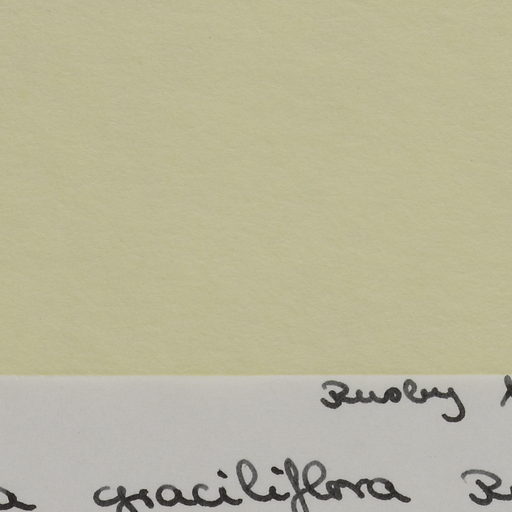 Rusby
a graciliflora R